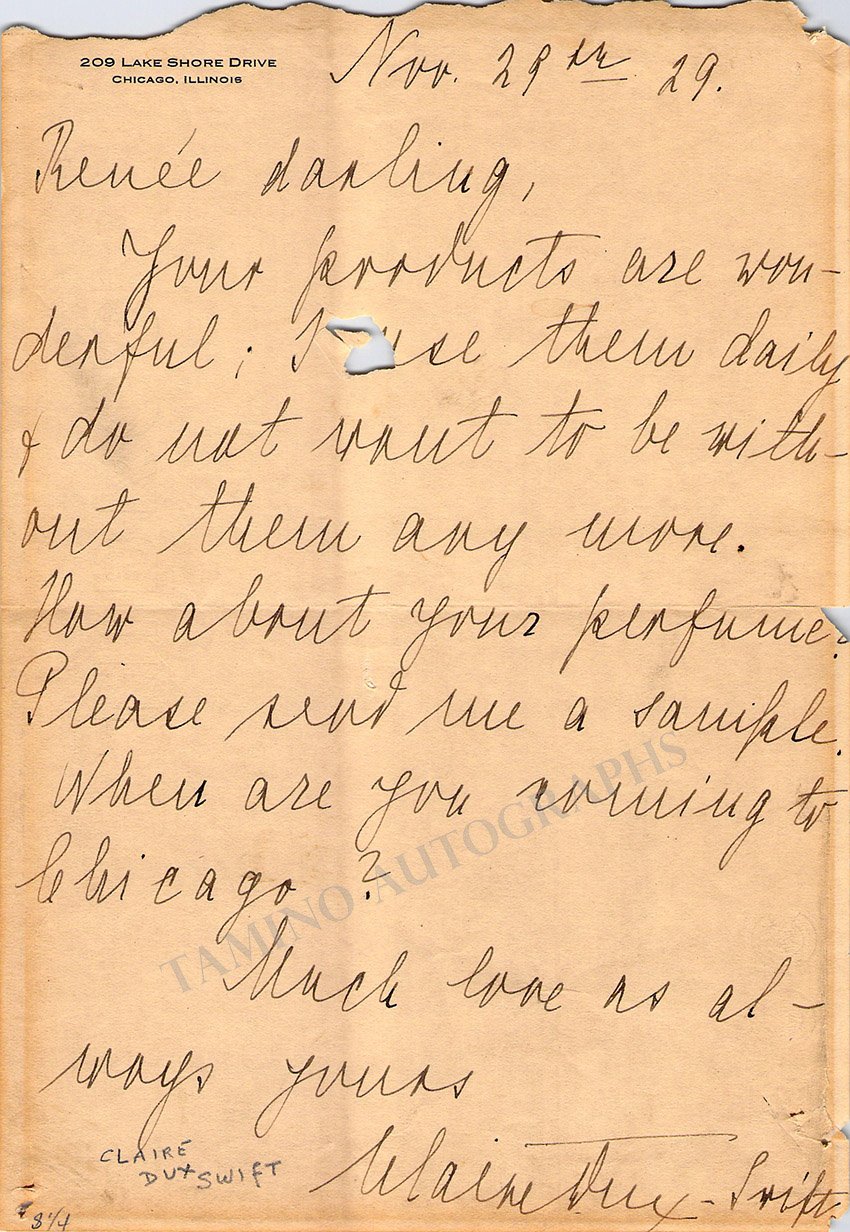 209 LAKE SHORE DRIVE
CHICAGO, ILLINOIS
Nov. 29th 29.
Renée darling,
Your products are won-
derful; I use them daily
& do not want to be with-
out them any more.
How about your perfume?
Please send me a sample.
When are you coming to
Chicago?
Much love as al-
ways yours
Claire Dux-Swift.
CLAIRE
DUX SWIFT
8 1/4
TAMINO AUTOGRAPHS